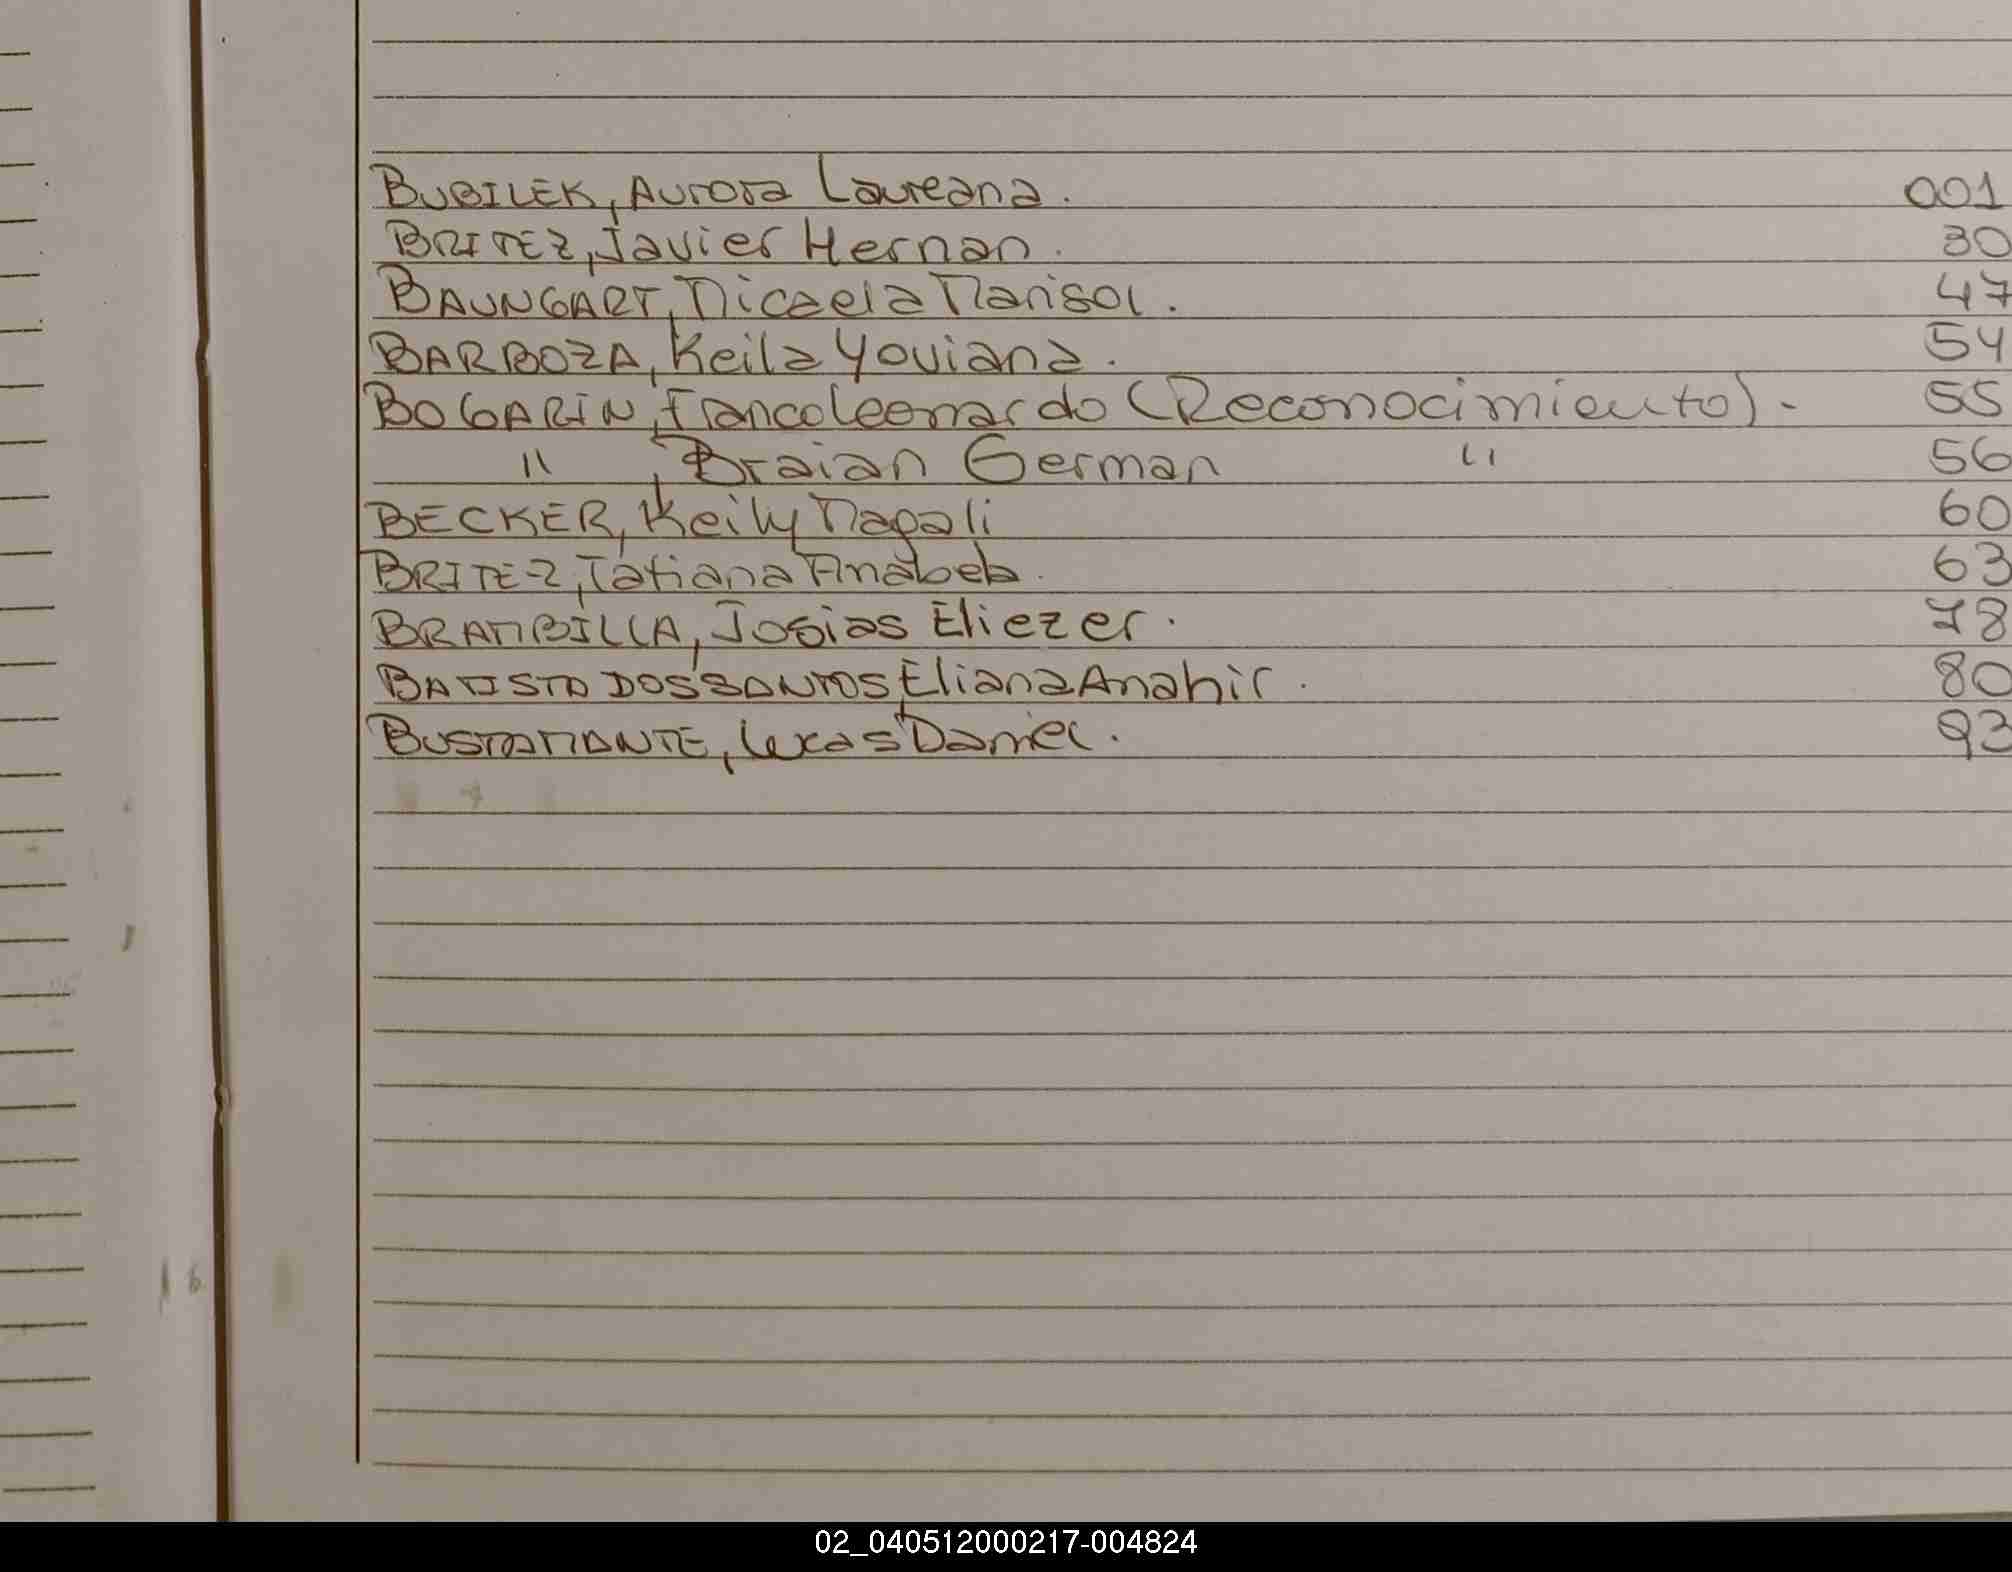 BUBILEK, Aurora Laureana. 001
BRITEZ, Javier Hernan. 30
BAUNGART, Micaela Marisol. 47
BARBOZA, Keila Yoviana. 54
BOGARIN, Franco Leonardo (Reconocimiento).- 55
" , Braian German " 56
BECKER, Keily Magali 60
BRITEZ, Tatiana Anabela. 63
BRAMBILLA, Josias Eliezer. 78
BATISTA DOS SANTOS, Eliana Anahir. 80
BUSTAMANTE, Lucas Daniel. 93
02_040512000217-004824